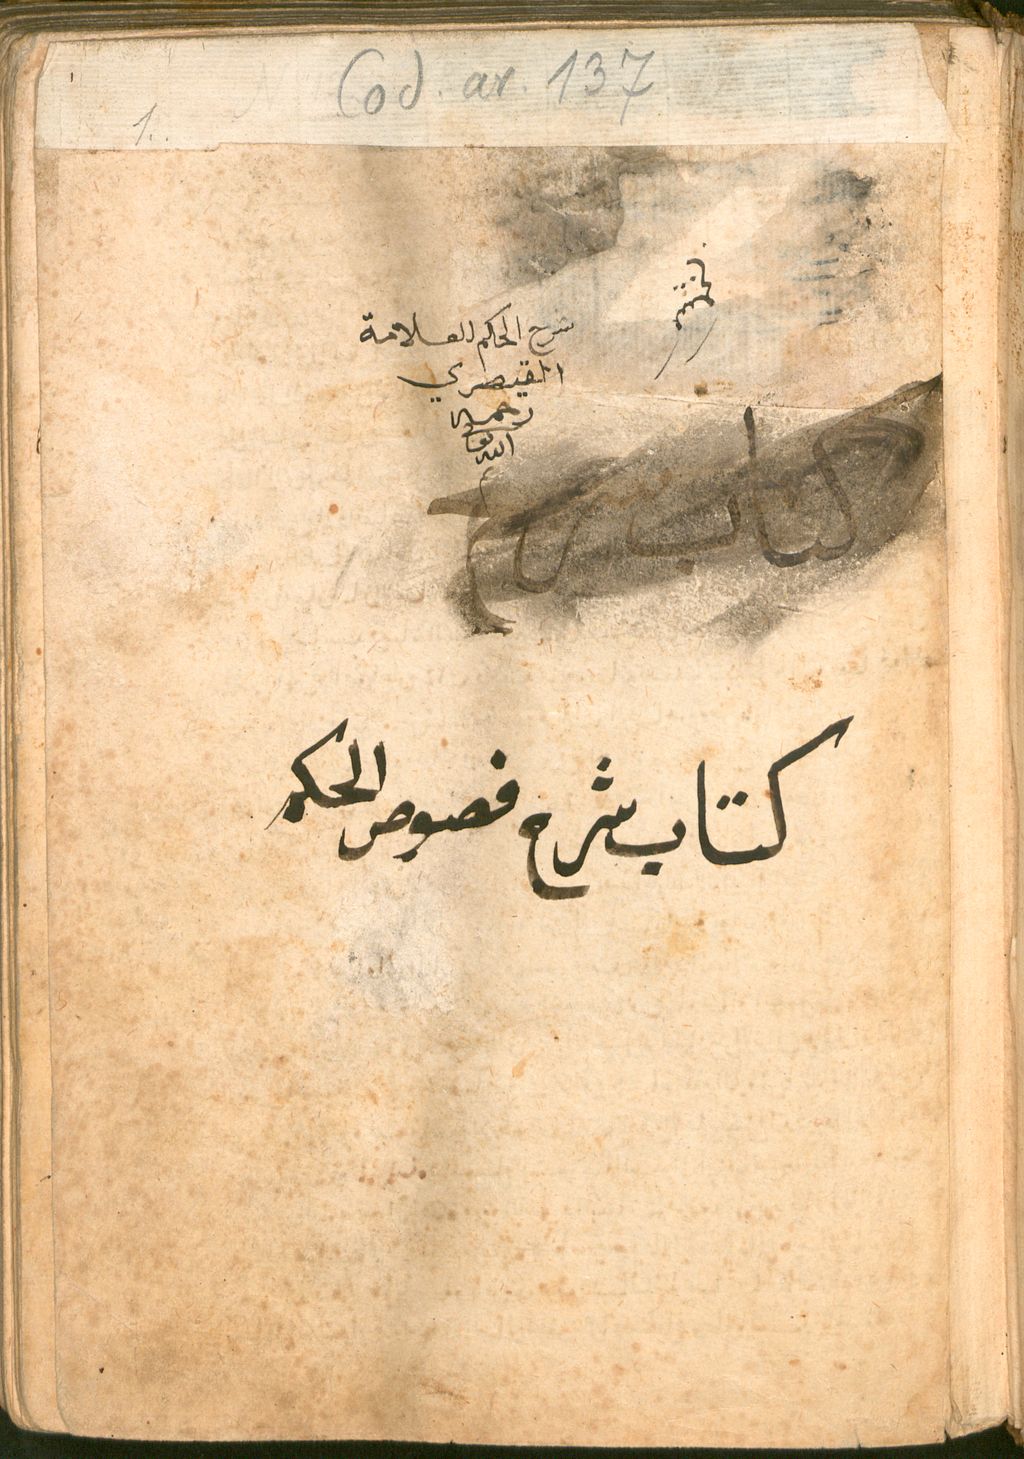 Cod. ar. 137
1.
شرح الحكم للعلامة
القيصري
رحمه
الله
كتاب شرح
كتاب شرح فصوص الحكم